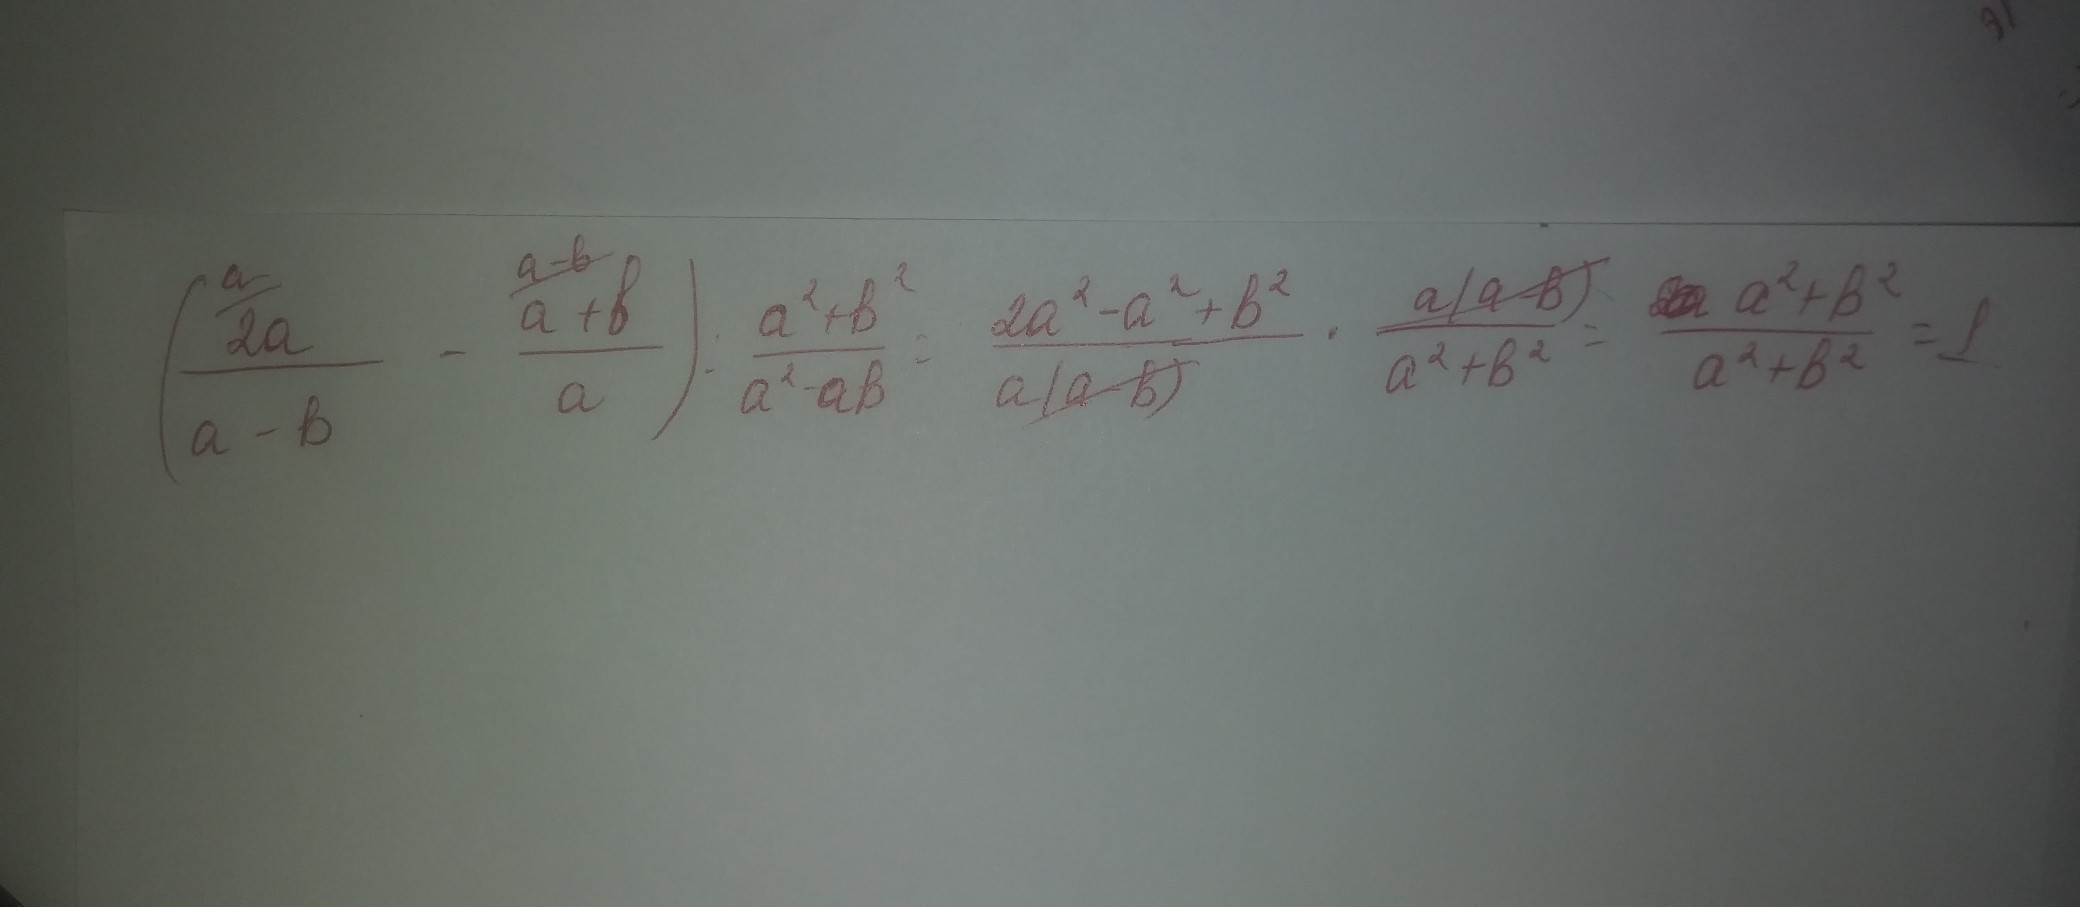 (ᵃ⁄ 2a/(a-b) - ᵃ⁻ᵇ⁄ (a+b)/a) : (a²+b²)/(a²-ab) = (2a²-a²+b²)/(a(a-b)) · (a(a-b))/(a²+b²) = (a²+b²)/(a²+b²) = 1